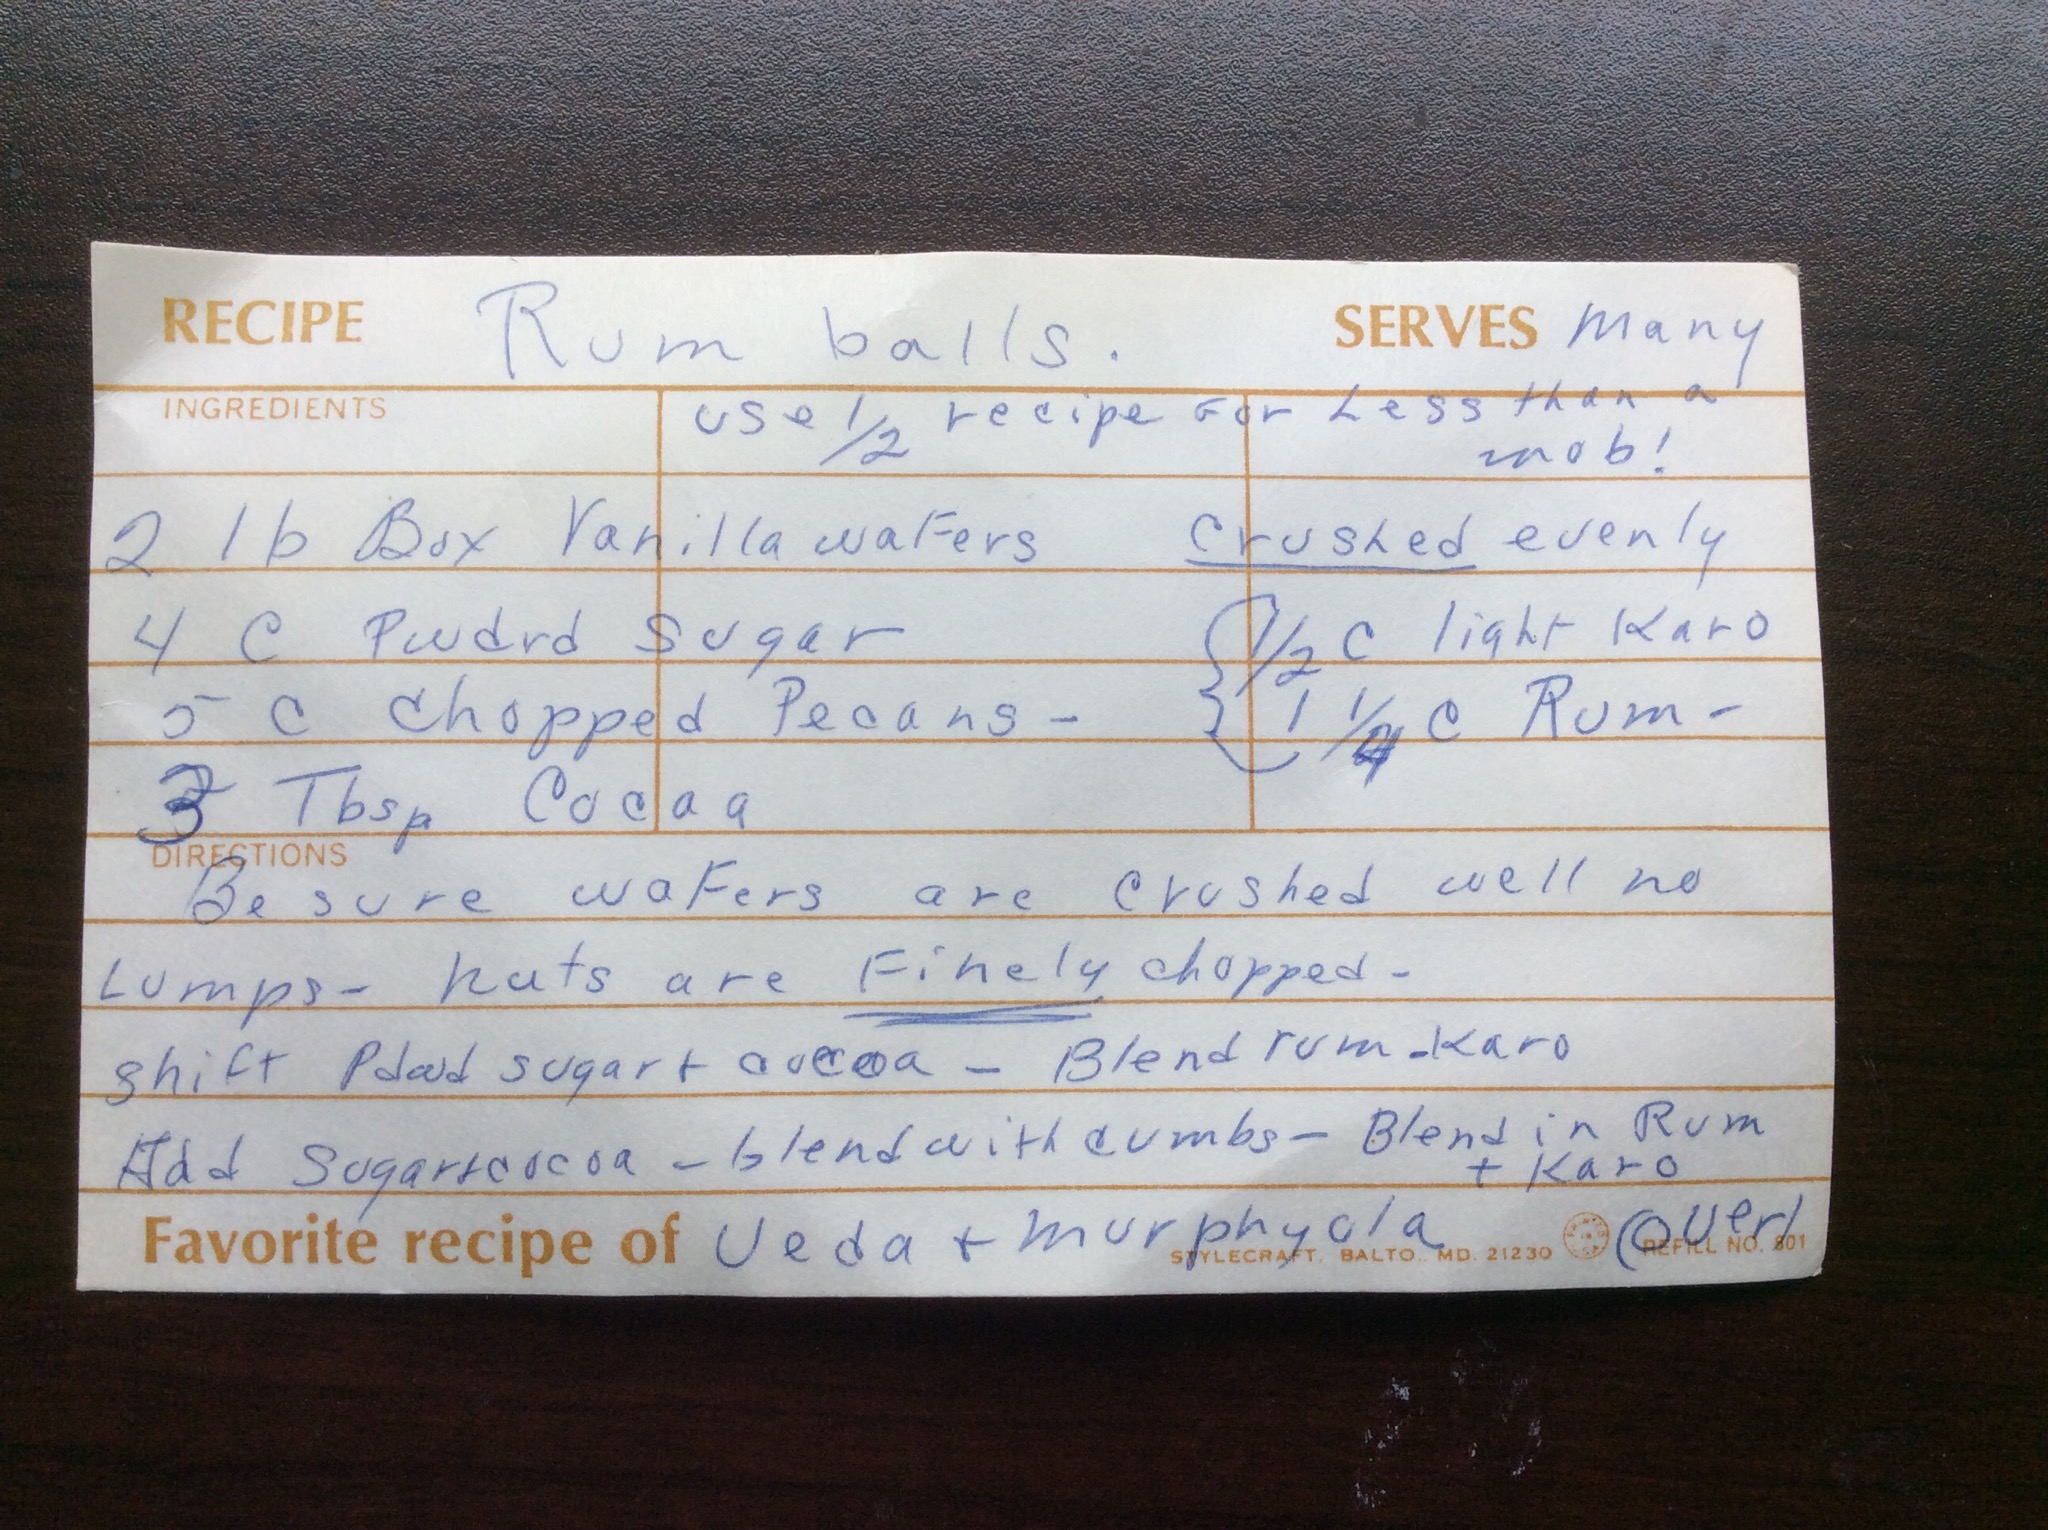 RECIPE Rum balls. SERVES Many
INGREDIENTS use 1/2 recipe For Less than a
mob!
2 lb Box Vanilla waFers crushed evenly
4 C Pwdrd Sugar { 1/2 C light Karo
5 C chopped Pecans - 1 1/4 C Rum -
3 Tbsp Cocoa
DIRECTIONS
Be sure waFers are crushed well no
Lumps - nuts are Finely chopped -
shift sugar + cocoa - Blend rum - Karo
Add Sugar + cocoa - blend with cumbs - Blend in Rum
+ Karo
Favorite recipe of Veda + Murphyola Over!
STYLECRAFT, BALTO. MD. 21230 PRINTED IN REFILL NO. 801